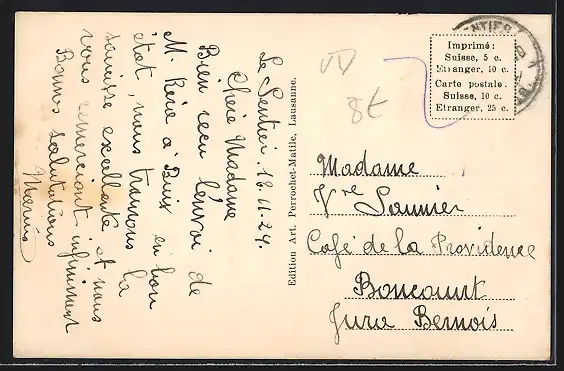 Le Sentier. 18.11.24.
Chère Madame
Bien reçu l'envoi de
M. Rére à Buix en bon
état, nous trouvons la
saucisse excellente et nous
vous remerciont infiniment
Bonnes salutations
Marius
Edition Art. Perrochet-Matile, Lausanne.
ENTIER
Imprimé:
Suisse, 5 c.
Etranger, 10 c.
Carte postale:
Suisse, 10 c.
Etranger, 25 c.
8t
Madame
Vve Saunier
Café de la Providence
Boncourt
Jura Bernois